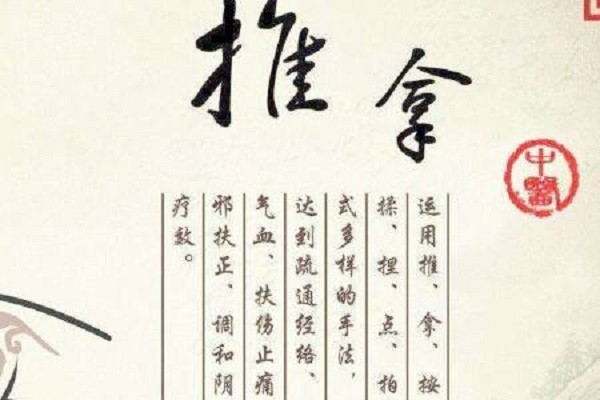 推拿
中醫
运用推、拿、按
揉、捏、点、拍
式多样的手法，
达到疏通经络、
气血、扶伤止痛
邪扶正、调和阴
疗效。